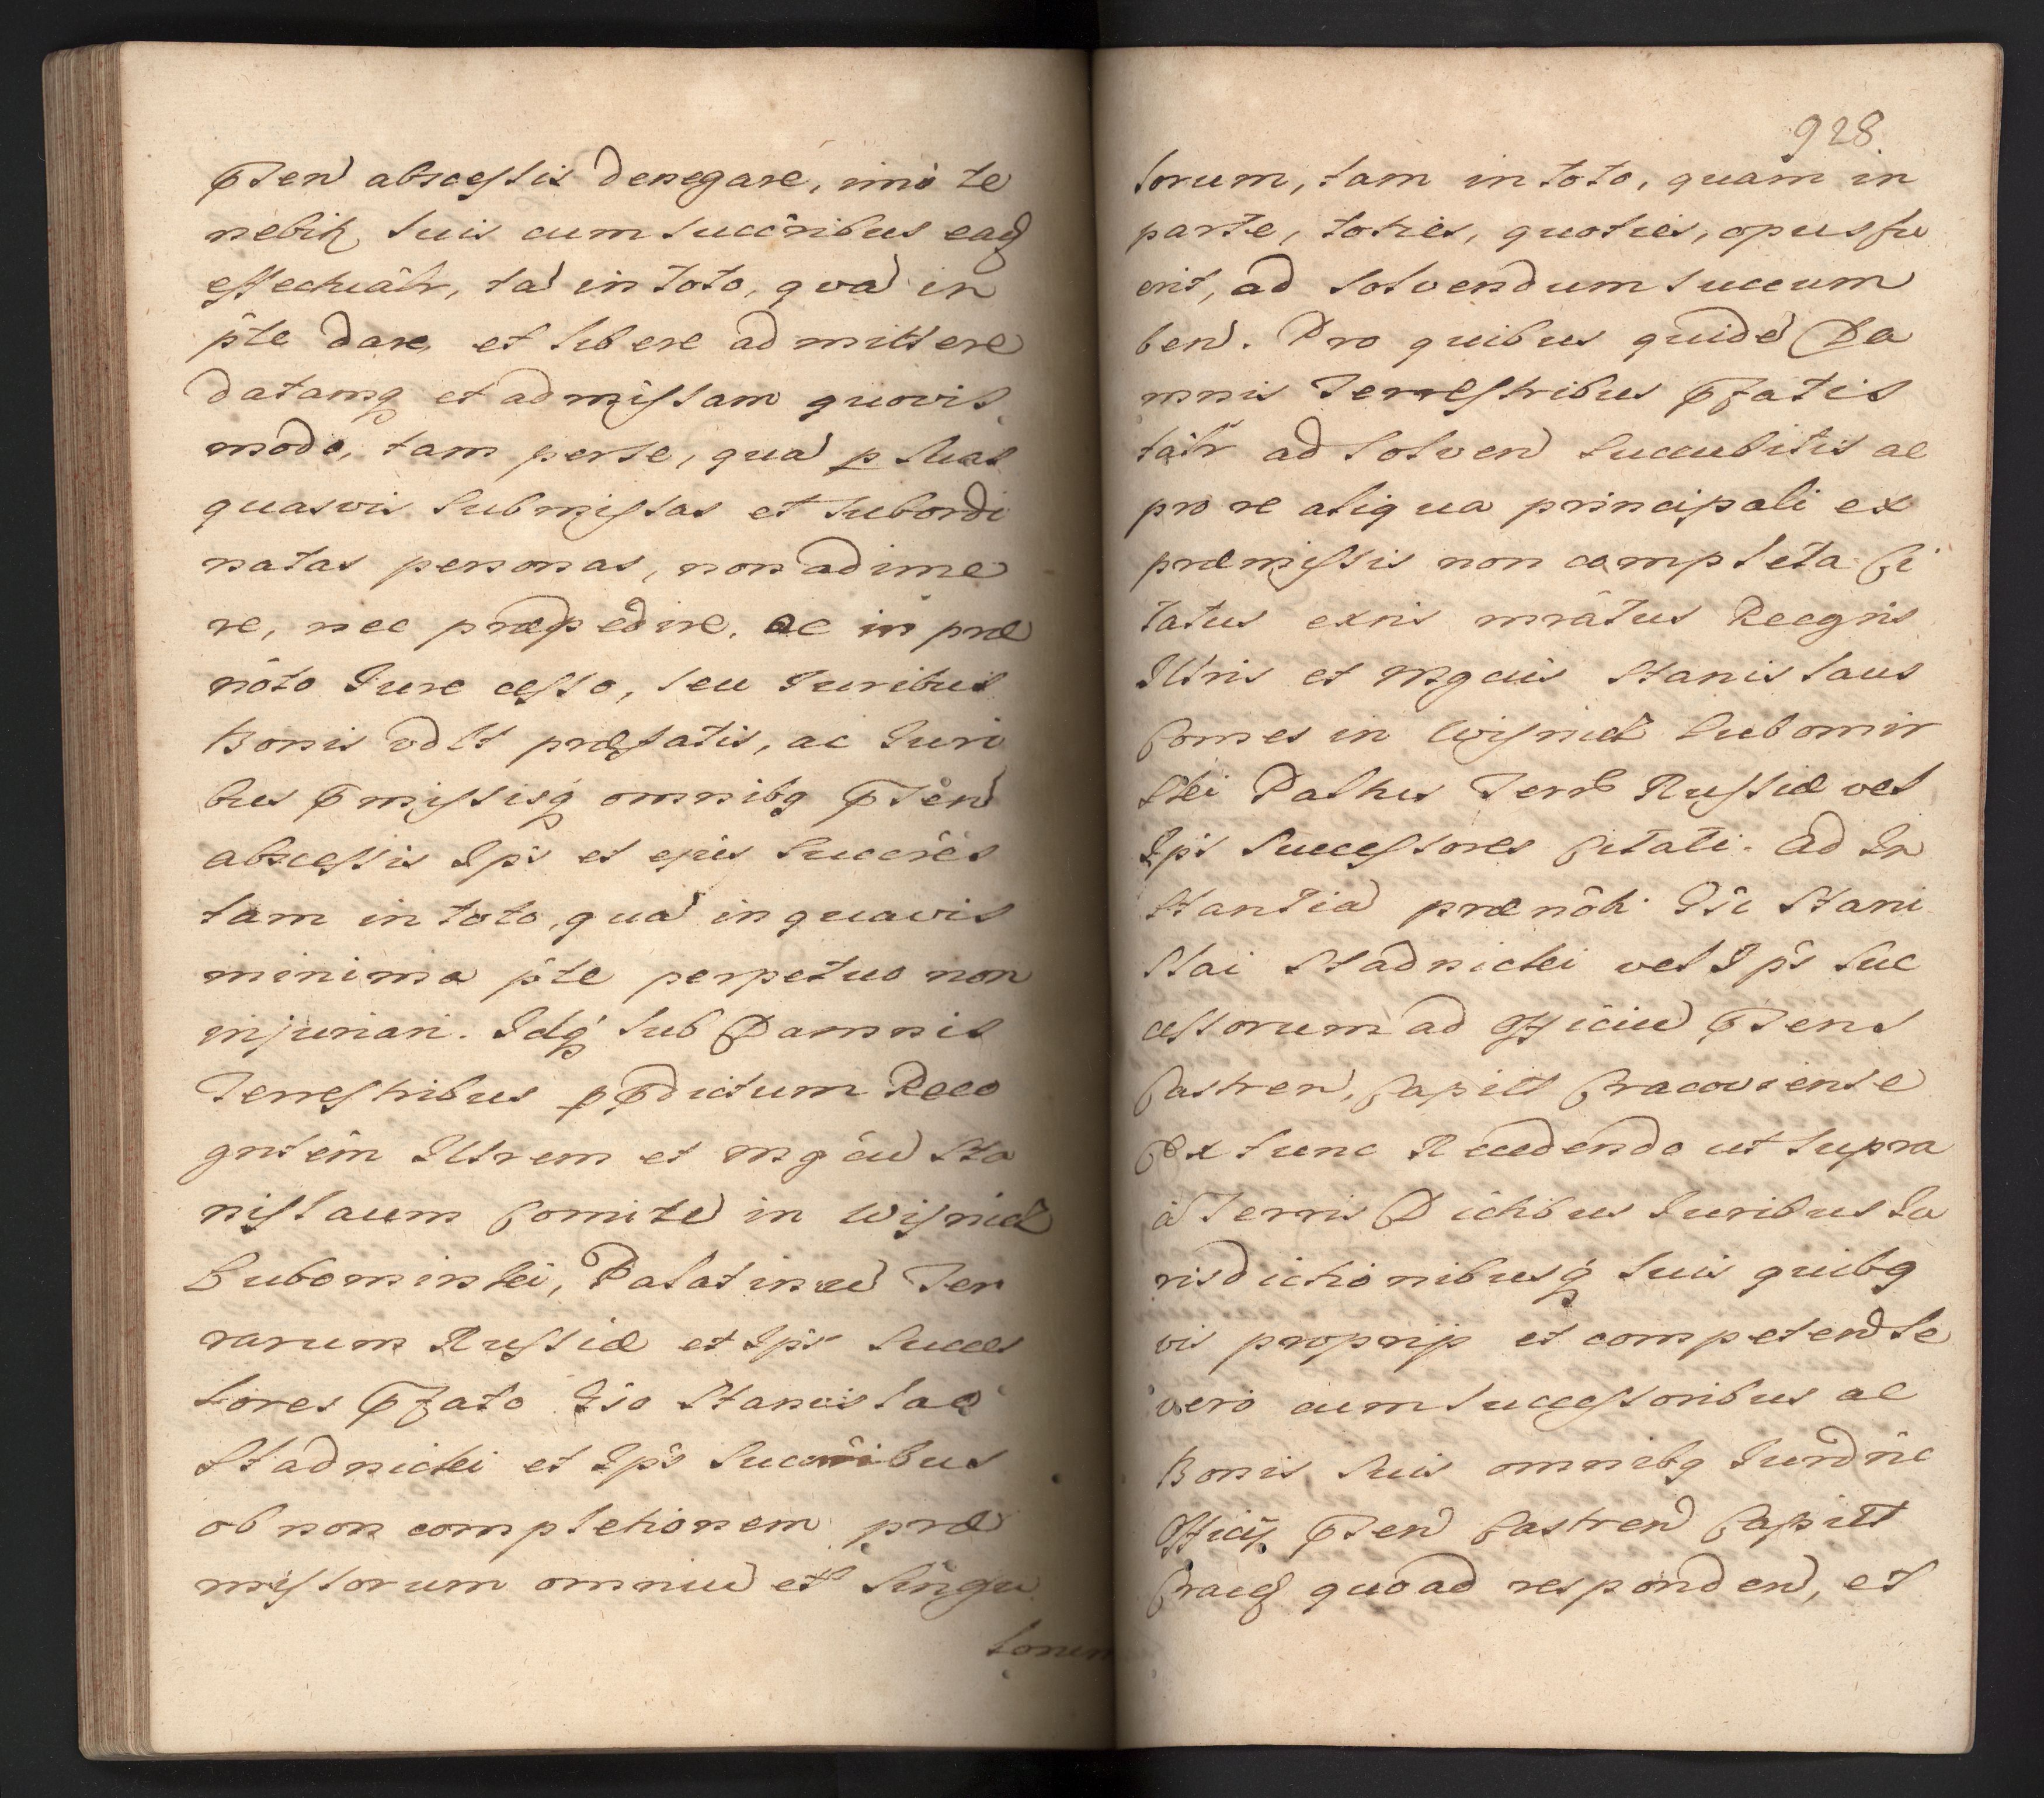 p̄sen abscessis denegare, imo te
nebit suis cum succ̃ribus eaq
effectuàlr, ta in toto, qva in
p̃te dare et libere admittere
datamq et admissam quovis
modo, tam per se, qua p suas
quasvis submissas et subordi
natas personas, non adime
re, nec præpedire, ac in præ
nôto Jure cesso, seu Juribus
Bonis vdlt præfatis, ac Juri
bus p̄missisq omnibq p̄sen
abscessis Ips et ejus succrês
tam in toto, qua in quavis
minima p̃te perpetuo non
injuriari. Idq sub Damnis
Terrestribus p p̄dictum Reco
gntêm Illrem et Mgcu Sta
nislaum Comite in Wisnicz
Lubomirski, Palatinu Ter
rarum Russiæ et Ips Succes
sores p̄fato Gso Stanislao
Stadnicki et Ips succribus
ob non completionem præ
missorum omniu et singu
lorum
928.
lorum, tam in toto, quam in
parte, toties, quoties, opus fu
erit, ad solvendum succum
ben. Pro quibus quide Da
mnis Terrestribus p̄fatis
tâlr ad solven succubitis ac
pro re aliqua principali ex
præmissis non completa Ci
tatus exnis mrâtus Recgns
Illris et Mgcus Stanislaus
Comes in Wisnicz Lubomir
ski Palnus Terrr Russiæ vel
Ips Successores Citati. Ad In
stantia prænôti Gsi Stani
slai Stadnicki vel Ips Suc
cessorum ad Officiu p̄sens
Castren, Capitt Cracoviense
Ex tunc Recedendo ut supra
à Terris Dictibus Juribus Ju
risdictionibusq suis quibq
vis proprijs et competen se
vero cum successoribus ac
Bonis suis omnibq Jurdnê
Officÿ p̄sen Castren Capitt
Cracq quoad responden, et